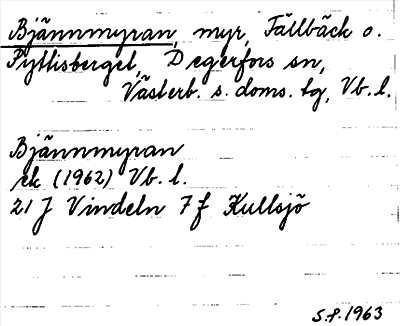 Bjännmyran, myr, Fällbäck o.
Pyttisberget, Degerfors sn,
Västerb. s. doms. tg, Vb. l.
Bjännmyran
ek (1962) Vb. l.
21 J Vindeln 7 f Kullsjö
S.P. 1963